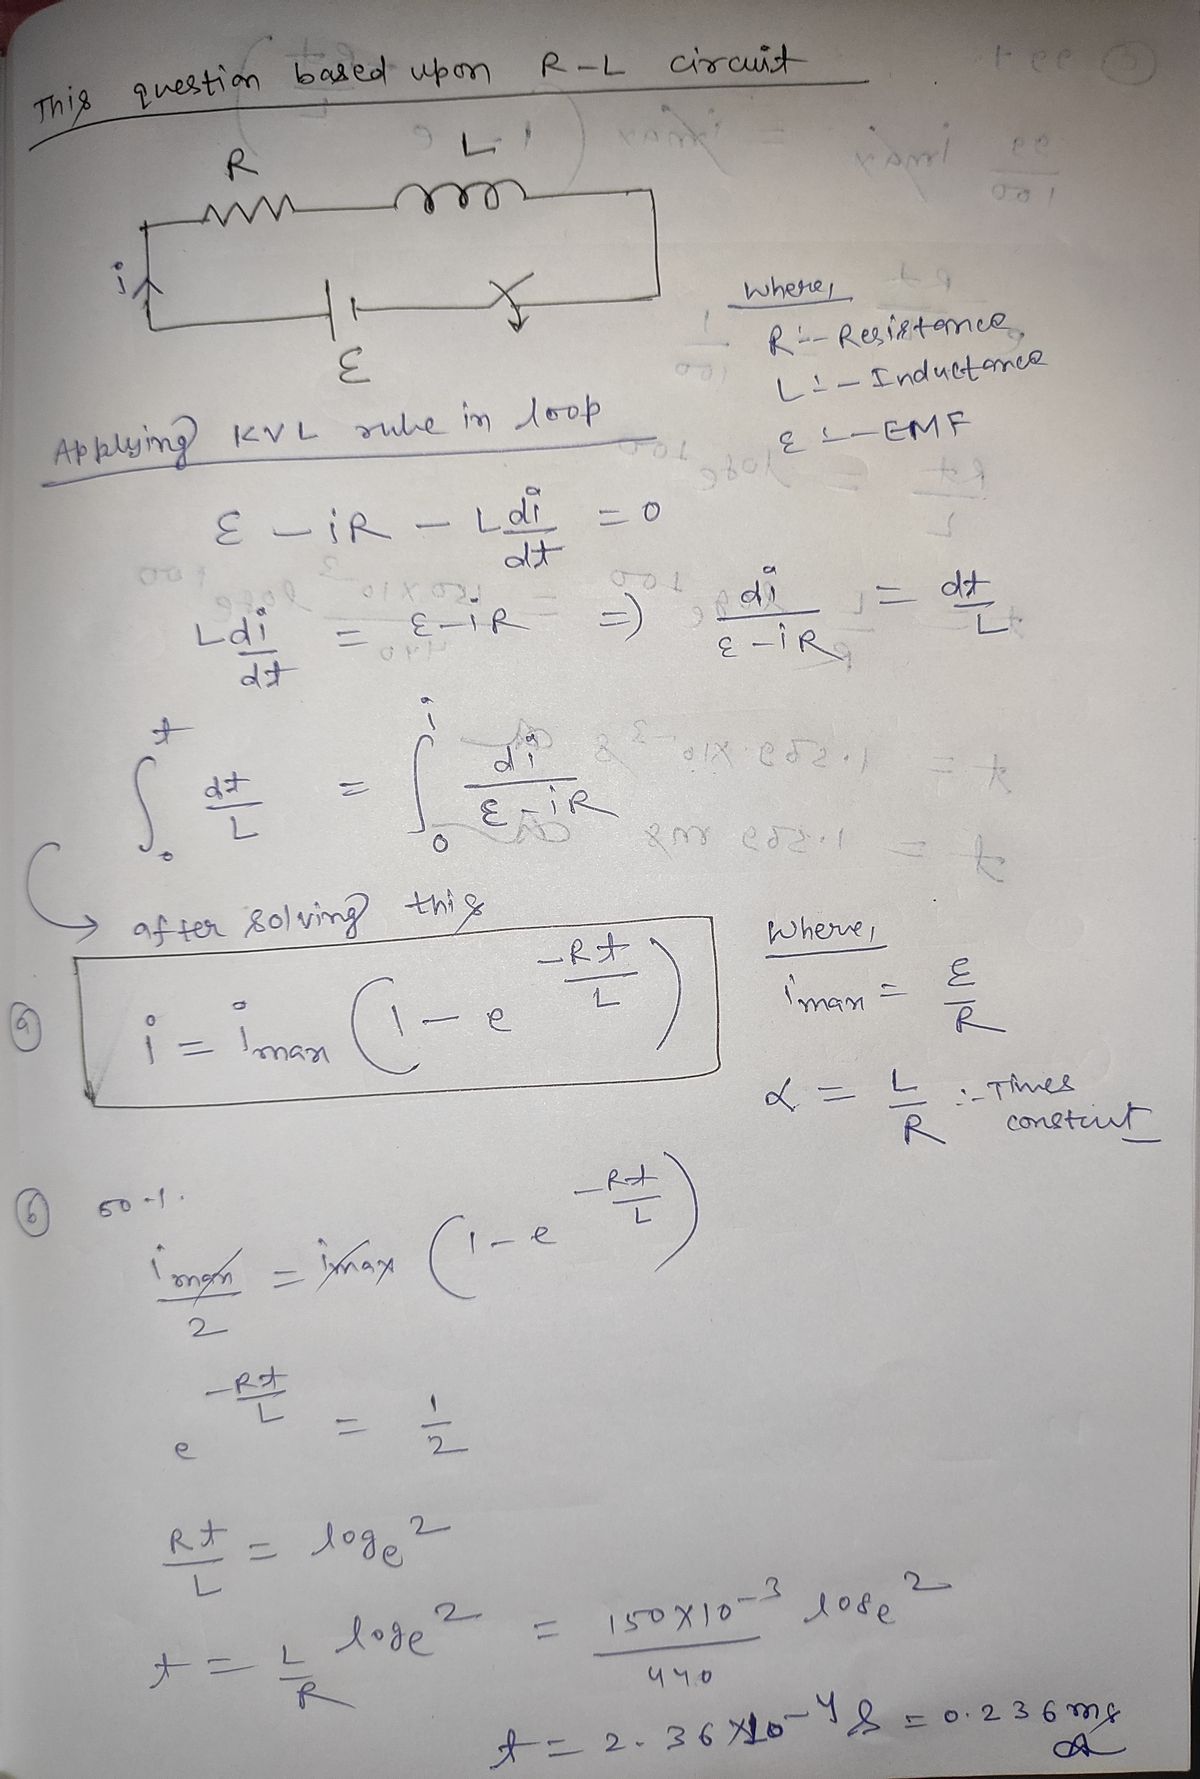 This question based upon R-L circuit
R L
i
ε
where,
R:- Resistance
L:- Inductance
ε :- EMF
Applying KVL rule in loop
ε - iR - L di/dt = 0
L di/dt = ε - iR => di/(ε - iR) = dt/L
∫₀ᵗ dt/L = ∫₀ⁱ di/(ε - iR)
after solving this
(a) i = imax (1 - e^(-Rt/L))
where,
imax = ε/R
α = L/R :- Times constant
(b) 50%.
imax/2 = imax (1 - e^(-Rt/L))
e^(-Rt/L) = 1/2
Rt/L = logₑ2
t = L/R logₑ2 = 150×10⁻³/440 logₑ2
t = 2.36×10⁻⁴ s = 0.236 ms